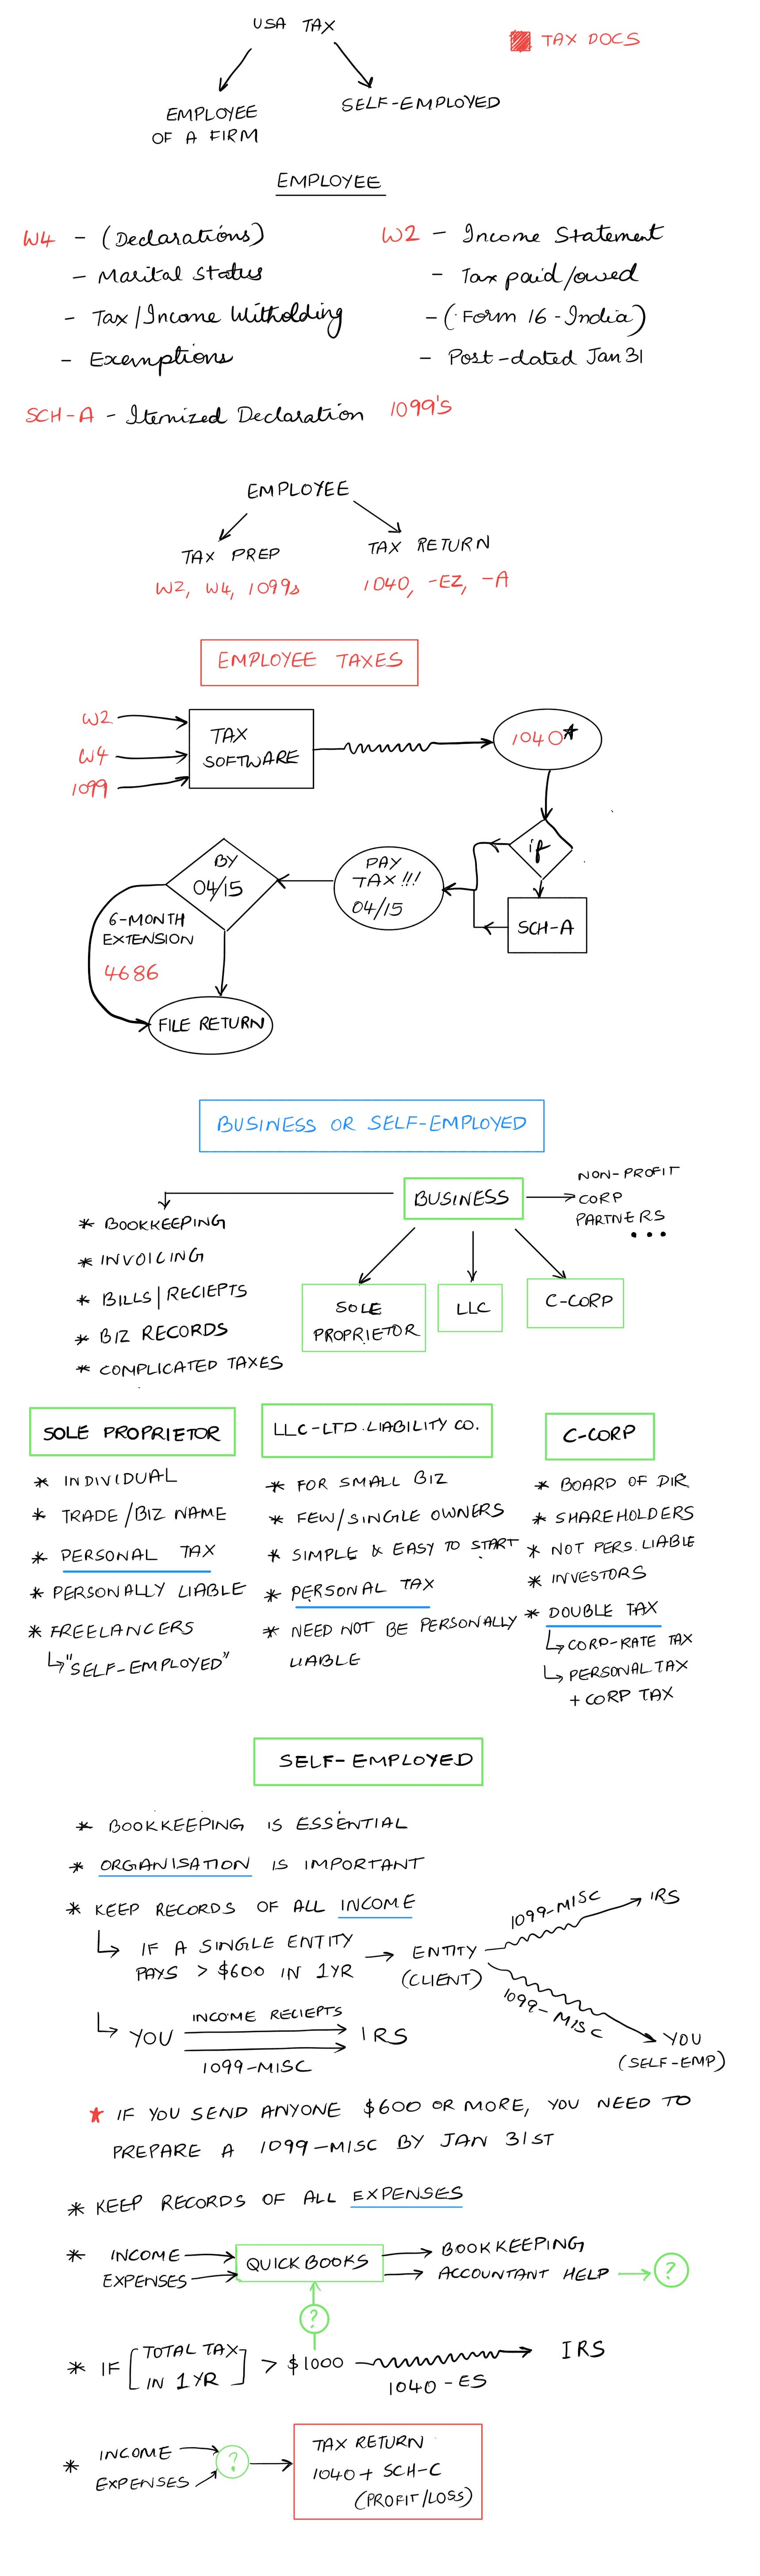 USA TAX
TAX DOCS
EMPLOYEE
OF A FIRM
SELF-EMPLOYED
EMPLOYEE
W4 - (Declarations)
- Marital Status
- Tax/Income Witholding
- Exemptions
W2 - Income Statement
- Tax paid/owed
- (Form 16 - India)
- Post-dated Jan 31
SCH-A - Itemized Declaration
1099'S
EMPLOYEE
TAX PREP
W2, W4, 1099s
TAX RETURN
1040, -EZ, -A
EMPLOYEE TAXES
W2
W4
1099
TAX
SOFTWARE
1040*
if
SCH-A
PAY
TAX!!!
04/15
BY
04/15
6-MONTH
EXTENSION
4686
FILE RETURN
BUSINESS OR SELF-EMPLOYED
BUSINESS
NON-PROFIT
CORP
PARTNERS
...
* BOOKKEEPING
* INVOICING
* BILLS|RECIEPTS
* BIZ RECORDS
* COMPLICATED TAXES
SOLE
PROPRIETOR
LLC
C-CORP
SOLE PROPRIETOR
* INDIVIDUAL
* TRADE/BIZ NAME
* PERSONAL TAX
* PERSONALLY LIABLE
* FREELANCERS
↳"SELF-EMPLOYED"
LLC-LTD.LIABILITY CO.
* FOR SMALL BIZ
* FEW/SINGLE OWNERS
* SIMPLE & EASY TO START
* PERSONAL TAX
* NEED NOT BE PERSONALLY
LIABLE
C-CORP
* BOARD OF DIR
* SHAREHOLDERS
* NOT PERS. LIABLE
* INVESTORS
* DOUBLE TAX
↳ CORP-RATE TAX
↳ PERSONAL TAX
+ CORP TAX
SELF-EMPLOYED
* BOOKKEEPING IS ESSENTIAL
* ORGANISATION IS IMPORTANT
* KEEP RECORDS OF ALL INCOME
↳ IF A SINGLE ENTITY
PAYS > $600 IN 1YR
→ ENTITY
(CLIENT)
1099-MISC
IRS
1099-MISC
YOU
(SELF-EMP)
↳ YOU
INCOME RECIEPTS
1099-MISC
IRS
* IF YOU SEND ANYONE $600 OR MORE, YOU NEED TO
PREPARE A 1099-MISC BY JAN 31ST
* KEEP RECORDS OF ALL EXPENSES
* INCOME
EXPENSES
QUICKBOOKS
BOOKKEEPING
ACCOUNTANT HELP
?
?
* IF [TOTAL TAX
IN 1YR] > $1000
1040-ES
IRS
* INCOME
EXPENSES
?
TAX RETURN
1040 + SCH-C
(PROFIT/LOSS)